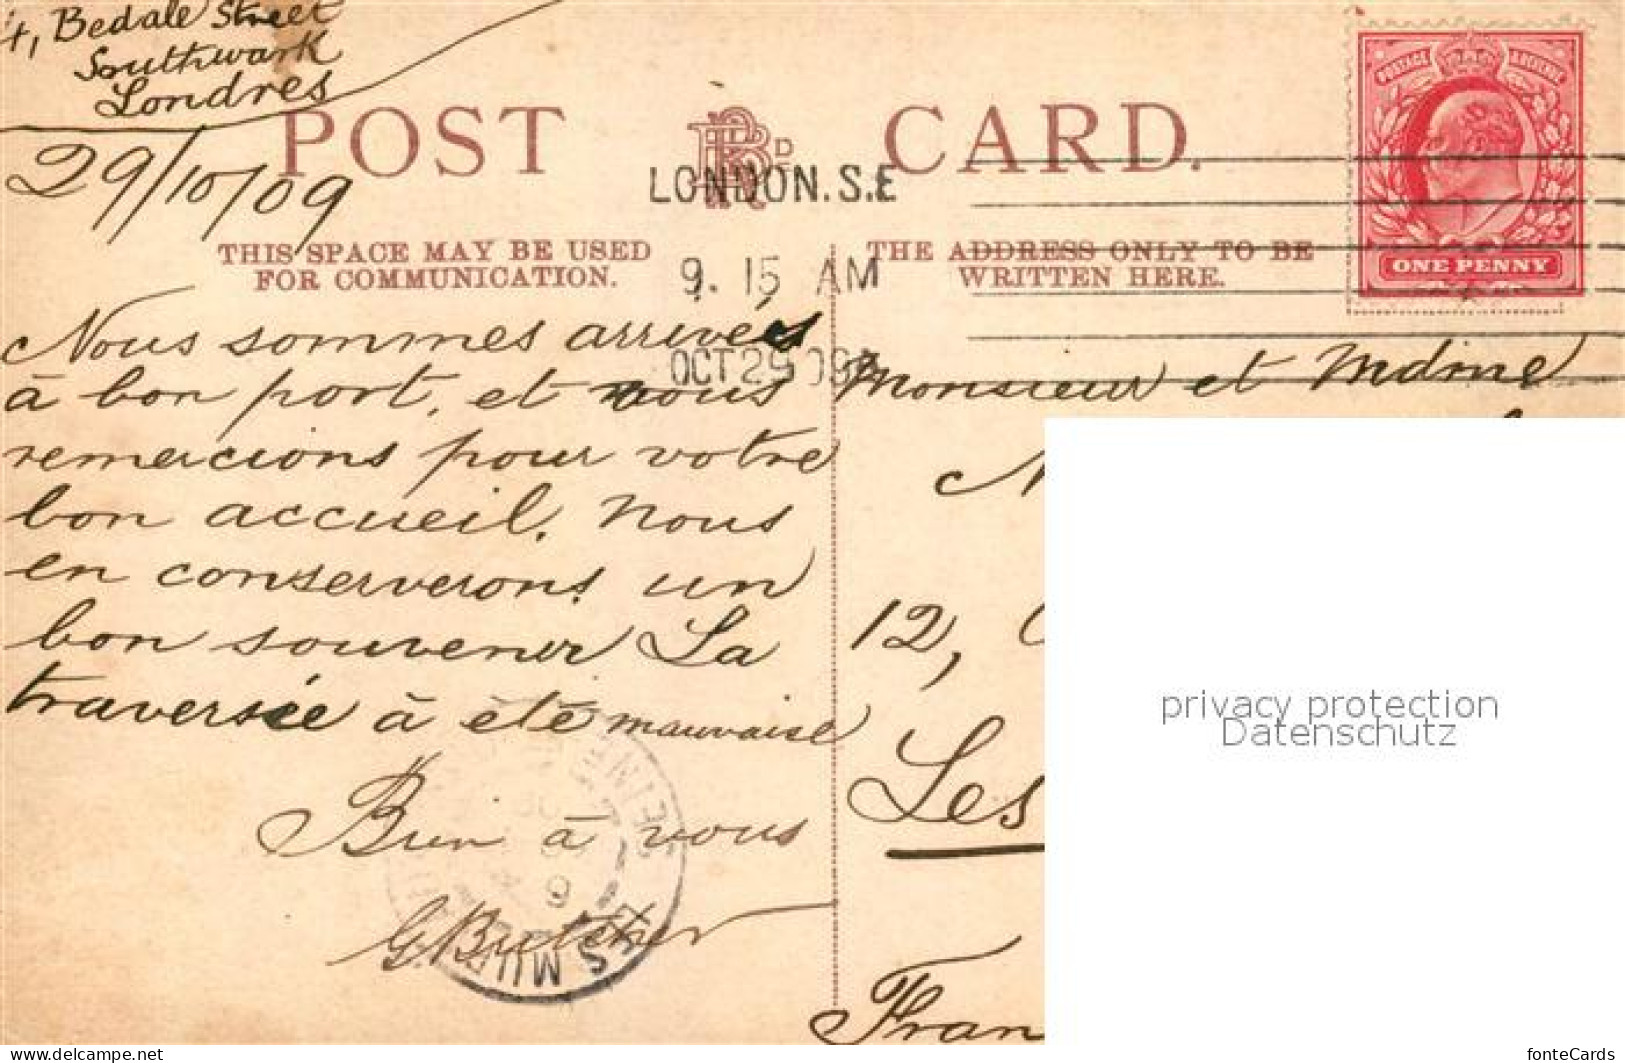 4, Bedale Street
Southwark
Londres
29/10/09
POST CARD.
LONDON.S.E
9. 15 AM
OCT 29 09
THIS SPACE MAY BE USED
FOR COMMUNICATION.
THE ADDRESS ONLY TO BE
WRITTEN HERE.
POSTAGE REVENUE
ONE PENNY
Nous sommes arrivés
à bon port, et vous
remercions pour votre
bon accueil. Nous
en conserverons un
bon souvenir La
traversée à été mauvaise
Bien à vous
G Butcher
Monsieur et Mdme
12,
Les
privacy protection
Datenschutz
fonteCards